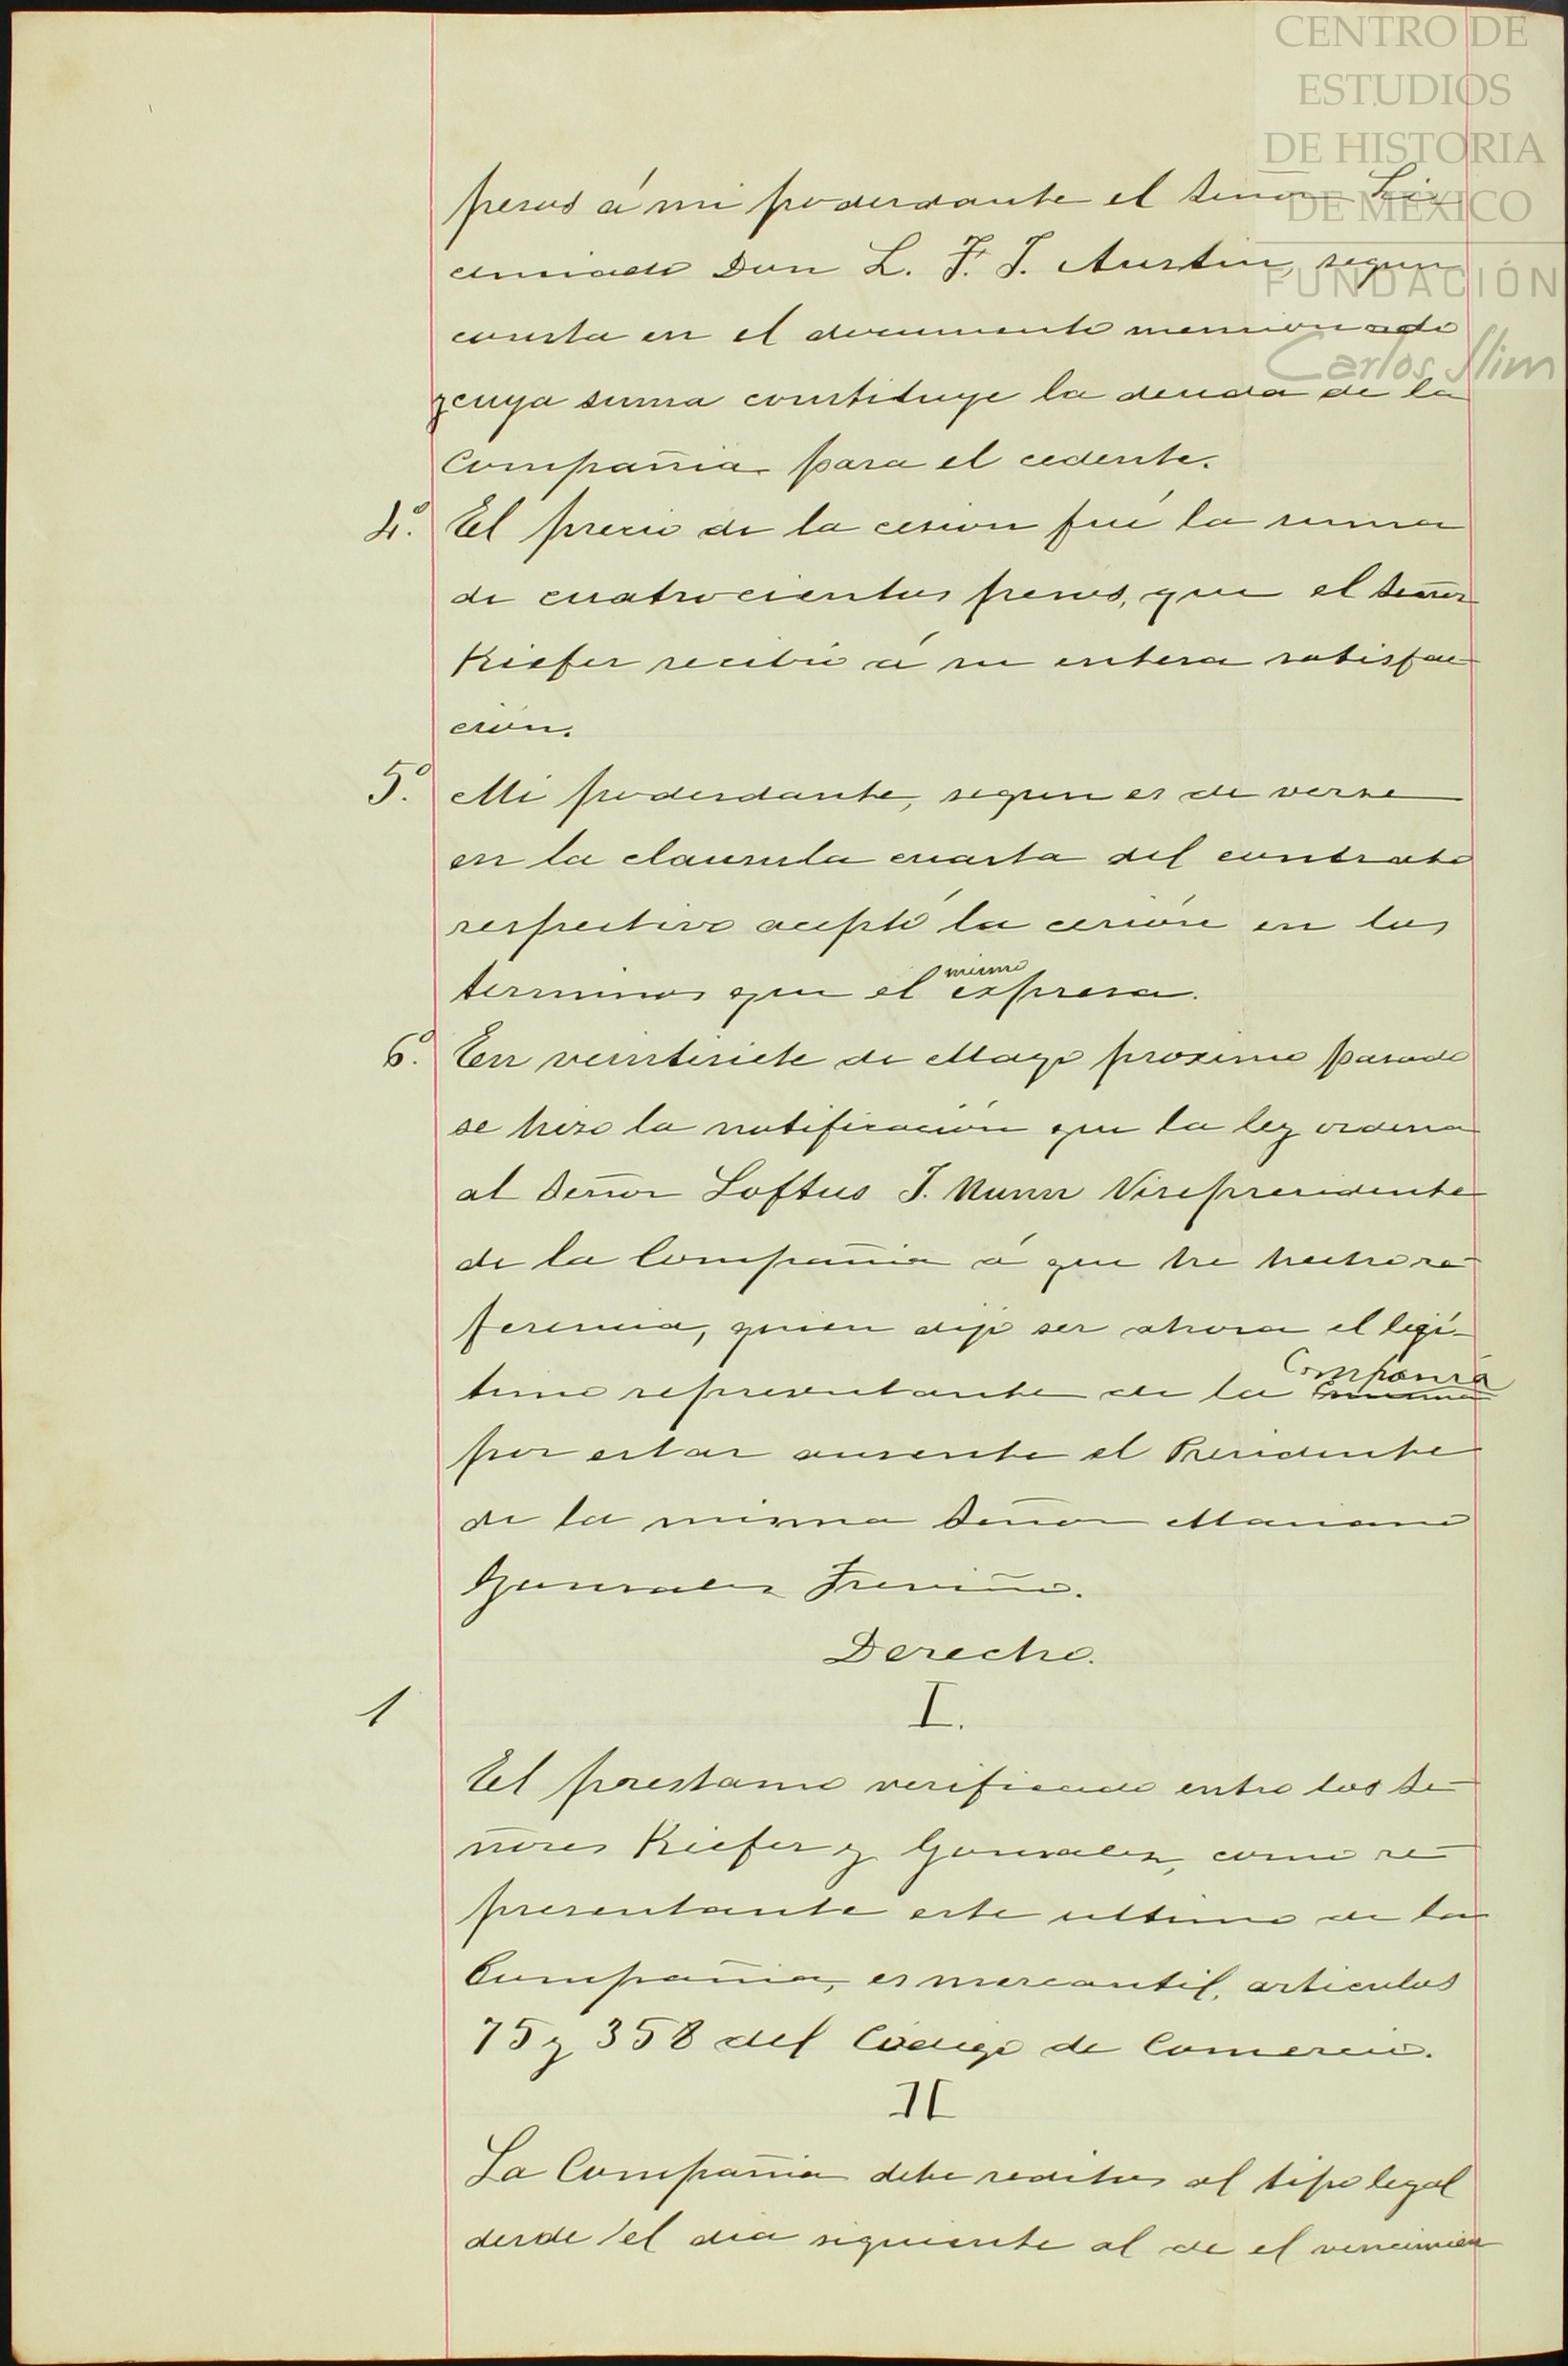 CENTRO DE
ESTUDIOS
DE HISTORIA
DE MÉXICO
FUNDACIÓN
Carlos Slim
pesos á mi poderdante el Señor Li-
cenciado Don L. F. J. Austin, segun
consta en el documento mencionado
y cuya suma constituye la deuda de la
Compañia para el cedente.
4.º El precio de la cesion fué la suma
de cuatrocientos pesos, que el Señor
Kiefer recibió á su entera satisfac-
ción.
5.º Mi poderdante, segun es de verse
en la clausula cuarta del contrato
respectivo aceptó la cesión en los
terminos que el mismo expresa.
6.º En veintisiete de Mayo proximo pasado
se hizo la notificación que la ley ordena
al Señor Loftus J. Nunn Vicepresidente
de la Compañia á que he hecho re-
ferencia, quien dijo ser ahora el legí-
timo representante de la Compañia
por estar ausente el Presidente
de la misma Señor Mariano
Gonzalez Treviño.
Derecho.
1
I.
El prestamo verificado entre los Se-
ñores Kiefer y Gonzalez, como re-
presentante este ultimo de la
Compañia, es mercantil, articulos
75 y 358 del Código de Comercio.
II
La Compañia debe reditos al tipo legal
desde el dia siguiente al de el vencimien